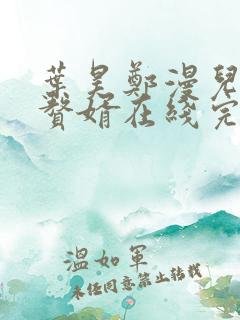 葉昊鄭漫兒
贅婿在綫完
溫如軍
未經同意禁止轉載